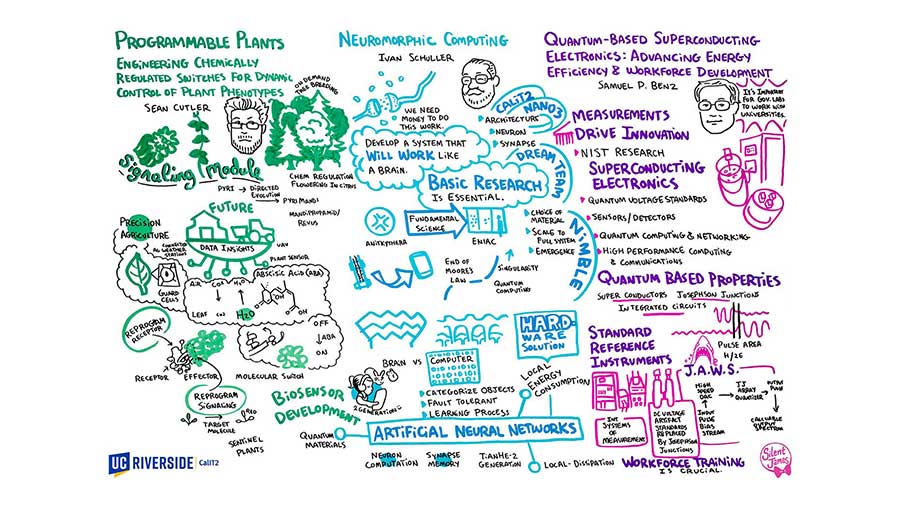 PROGRAMMABLE PLANTS
ENGINEERING CHEMICALLY
REGULATED SWITCHES FOR DYNAMIC
CONTROL OF PLANT PHENOTYPES
SEAN CUTLER
ON DEMAND
TREE BREEDING
Signaling Module
CHEM REGULATION
FLOWERING IN CITRUS
PYRI → DIRECTED
EVOLUTION
→ PYRMANDI
MANDIPROPAMID/
REVUS
FUTURE
PRECISION
AGRICULTURE
CONNECTED
AG WEATHER
STATIONS
DATA INSIGHTS
UAV
PLANT SENSOR
GUARD
CELLS
AIR CO2 H2O
ABSCISIC ACID (ABA)
LEAF
H2O
OH
OH
REPROGRAM
RECEPTOR
RECEPTOR
EFFECTOR
OFF
ABA
ON
MOLECULAR SWITCH
REPROGRAM
SIGNALING
TARGET
MOLECULE
SENTINEL
PLANTS
BIOSENSOR
DEVELOPMENT
UC RIVERSIDE | CalIT2
NEUROMORPHIC COMPUTING
IVAN SCHULLER
WE NEED
MONEY TO DO
THIS WORK.
CALIT2
NANO3
ARCHITECTURE
NEURON
SYNAPSE
DREAM TEAM
DEVELOP A SYSTEM THAT
WILL WORK LIKE
A BRAIN.
BASIC RESEARCH
IS ESSENTIAL.
ANTIKYTHERA
FUNDAMENTAL
SCIENCE
ENIAC
CHOICE OF
MATERIAL
SCALE TO
FULL SYSTEM
EMERGENCE
NIMBLE
END OF
MOORE'S
LAW
SINGULARITY
QUANTUM
COMPUTING
HARD-
WARE
SOLUTION
BRAIN VS COMPUTER
CATEGORIZE OBJECTS
FAULT TOLERANT
LEARNING PROCESS
2 GENERATIONS
LOCAL
ENERGY
CONSUMPTION
QUANTUM
MATERIALS
ARTIFICIAL NEURAL NETWORKS
NEURON
COMPUTATION
SYNAPSE
MEMORY
TIANHE-2
GENERATION
LOCAL-DISSIPATION
QUANTUM-BASED SUPERCONDUCTING
ELECTRONICS: ADVANCING ENERGY
EFFICIENCY & WORKFORCE DEVELOPMENT
SAMUEL P. BENZ
IT'S IMPORTANT
FOR GOV. LABS
TO WORK WITH
UNIVERSITIES.
MEASUREMENTS
DRIVE INNOVATION
NIST RESEARCH
SUPERCONDUCTING
ELECTRONICS
QUANTUM VOLTAGE STANDARDS
SENSORS/DETECTORS
QUANTUM COMPUTING & NETWORKING
HIGH PERFORMANCE COMPUTING
& COMMUNICATIONS
QUANTUM BASED PROPERTIES
SUPER CONDUCTORS JOSEPHSON JUNCTIONS
INTEGRATED CIRCUITS
PULSE AREA
H/2E
STANDARD
REFERENCE
INSTRUMENTS
J.A.W.S.
INT
SYSTEMS
OF
MEASUREMENT
DC VOLTAGE
ARTIFACT
STANDARDS
REPLACED
BY JOSEPHSON
JUNCTIONS
HIGH
SPEED
DAC
INPUT
PULSE
BIAS
STREAM
JJ ARRAY
QUANTIZER
OUTPUT
PULSE
WORKFORCE TRAINING
IS CRUCIAL.
Silent
James